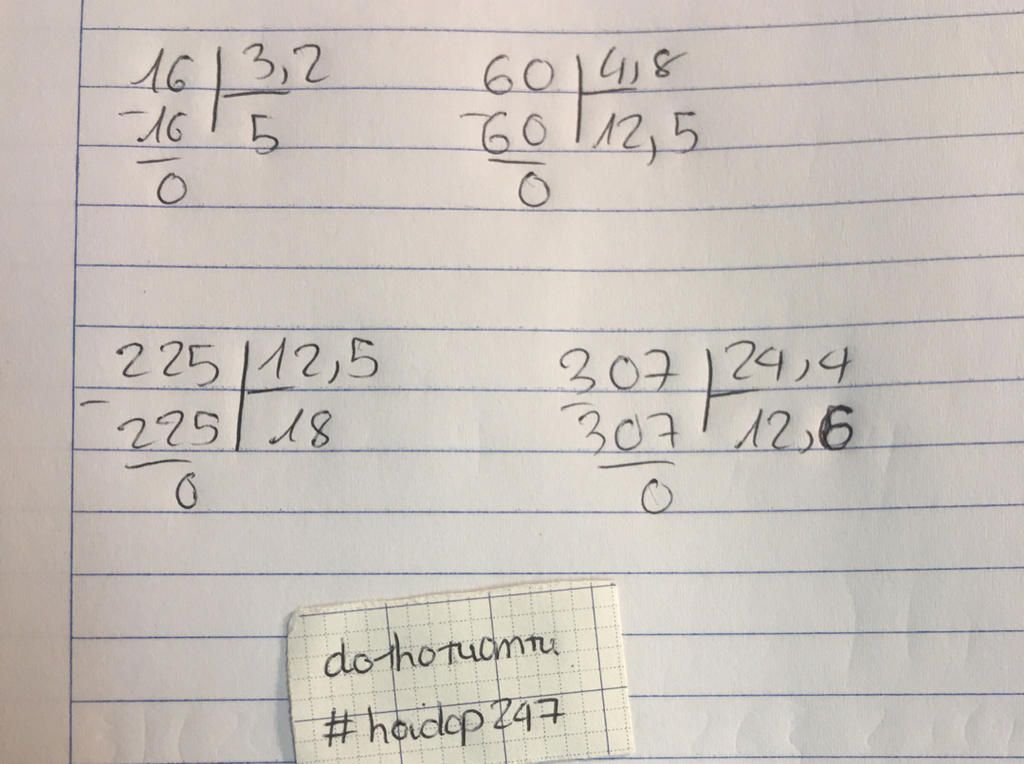 16 3,2
-16 5
0
60 4,8
-60 12,5
0
225 12,5
-225 18
0
307 24,4
-307 12,6
0
#hoidap247